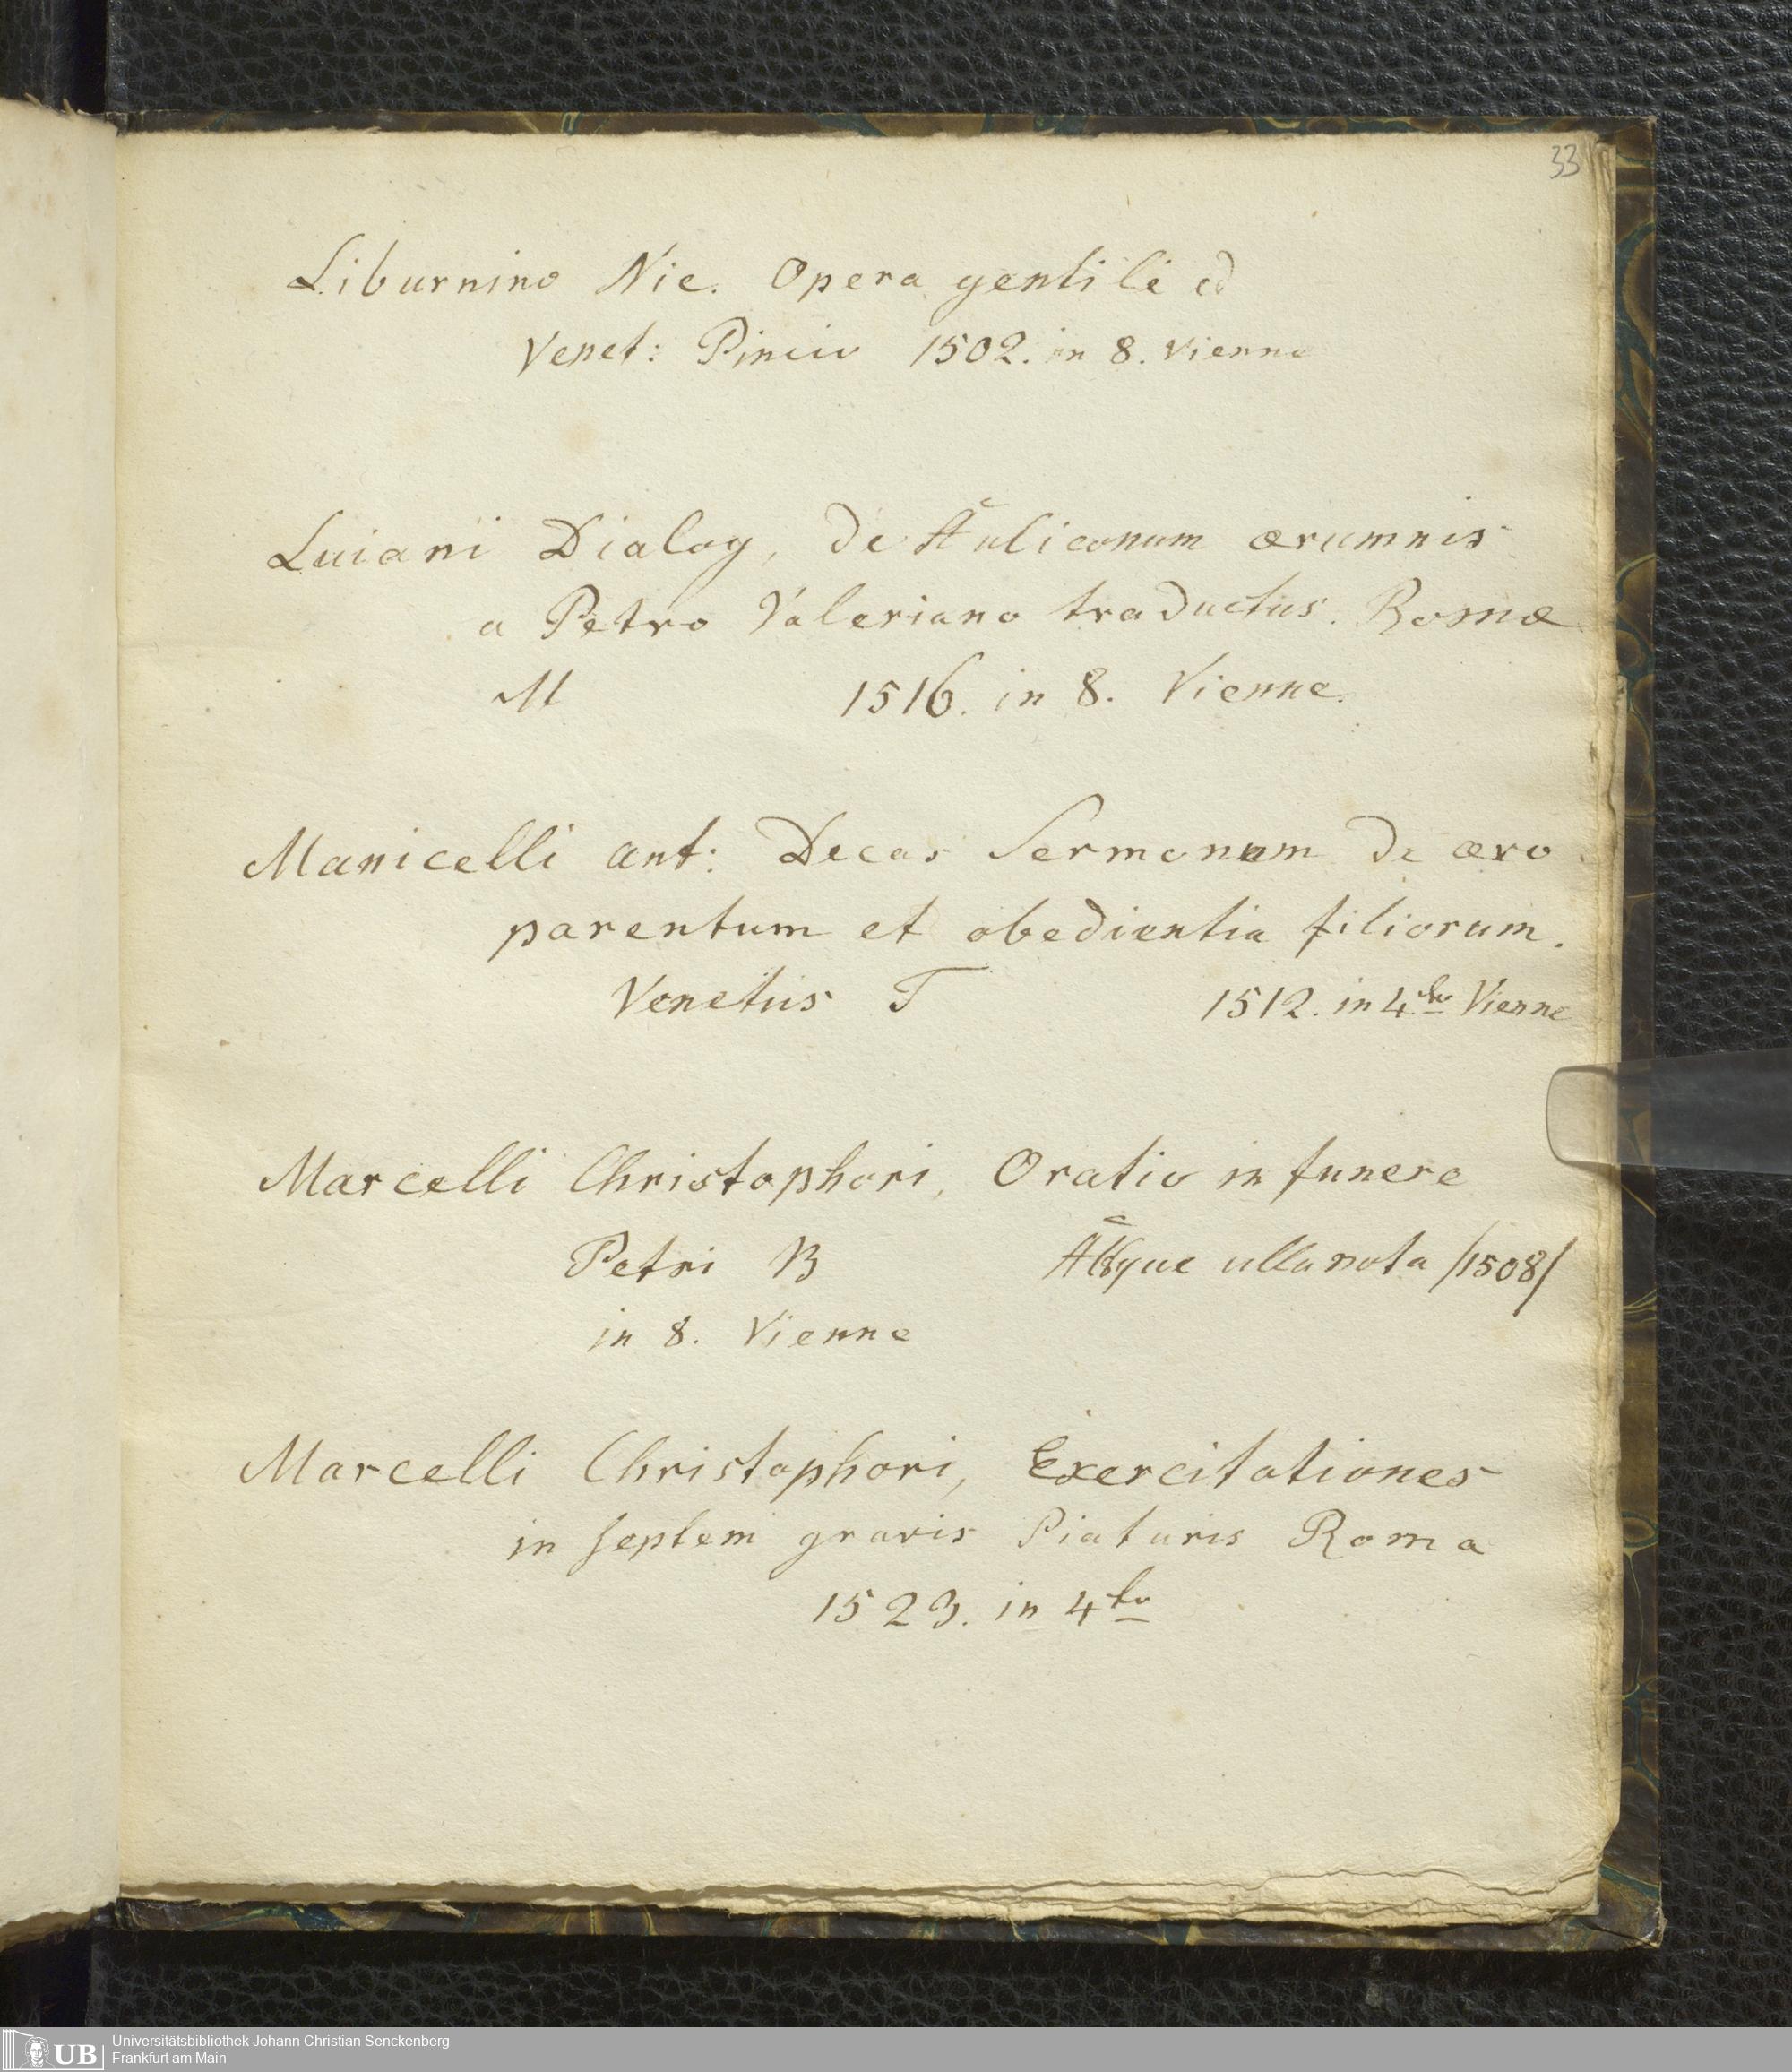 33
Liburnino Nic. Opera gentile ed
Venet: Pincio 1502. in 8. Vienne
Luiani Dialog, de Aulicorum ærumnis
a Petro Valeriano traductus. Romæ
M 1516. in 8. Vienne.
Manicelli ant: Decas Sermonum de æro
parentum et obedientia filiorum.
Venetiis T 1512. in 4to Vienne
Marcelli Christophori, Oratio in funere
Petri B Absque ulla nota /1508/
in 8. Vienne
Marcelli Christophori, Exercitationes
in septem gravis Piaturis Roma
1523. in 4to
UB Universitätsbibliothek Johann Christian Senckenberg
Frankfurt am Main